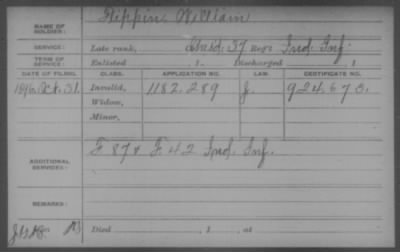 Flippin, William
NAME OF SOLDIER:
SERVICE: Late rank, 37 Reg't Ind. Inf.
TERM OF SERVICE: Enlisted , 1 . Discharged , 1
DATE OF FILING. CLASS. APPLICATION NO. LAW. CERTIFICATE NO.
1896 Oct. 31. Invalid, 1182.289 J. 924.673.
Widow,
Minor,
F 87 & F. 42 Ind. Inf.
ADDITIONAL SERVICES:
REMARKS:
Died , 1 , at